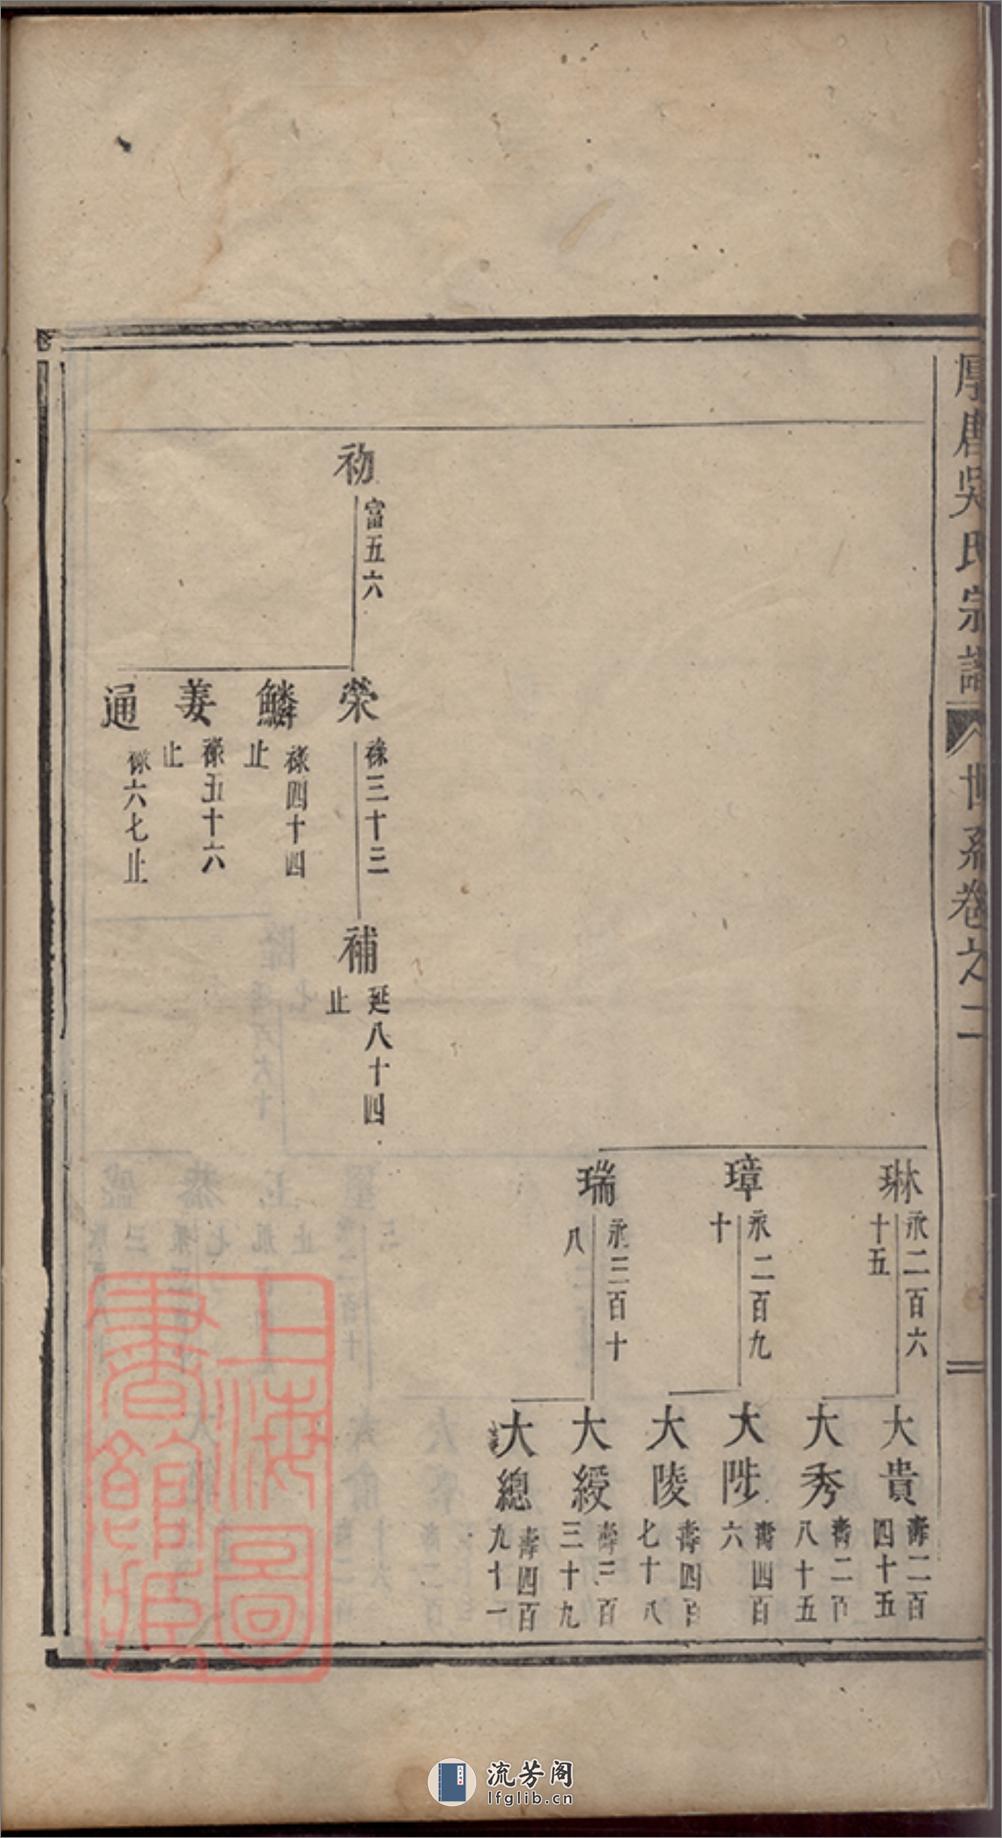 厚唐吳氏宗譜 世系卷之二
琳 永二百六十五
大貴 壽二百四十五
大秀 壽二百八十五
璋 永二百九十
大陞 壽四百六
大陵 壽四百七十八
瑞 永三百十八
大綬 壽三百三十九
大總 壽四百九十一
初 富五六
榮 祿三十三
補 延八十四止
鱗 祿四十四止
姜 祿五十六止
通 祿六七止
上海圖書館藏
流芳阁
lfglib.cn